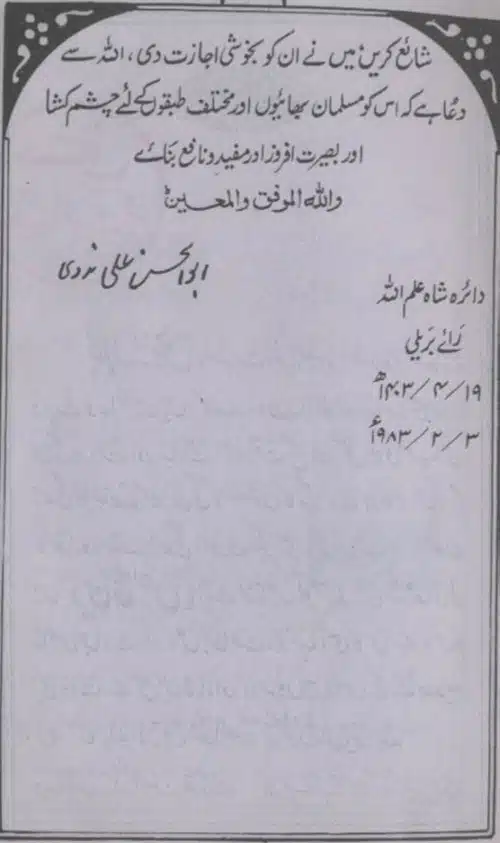 شائع کریں میں نے ان کو بخوشی اجازت دی، اللہ سے
دعا ہے کہ اس کو مسلمان بھائیوں اور مختلف طبقوں کے لئے چشم کشا
اور بصیرت افروز اور مفید و نافع بنائے
واللہ الموفق والمعین
ابوالحسن علی ندوی
دائرہ شاہ علم اللہ
رائے بریلی
۱۹/۴/۱۴۰۳ھ
۳/۲/۱۹۸۳ء